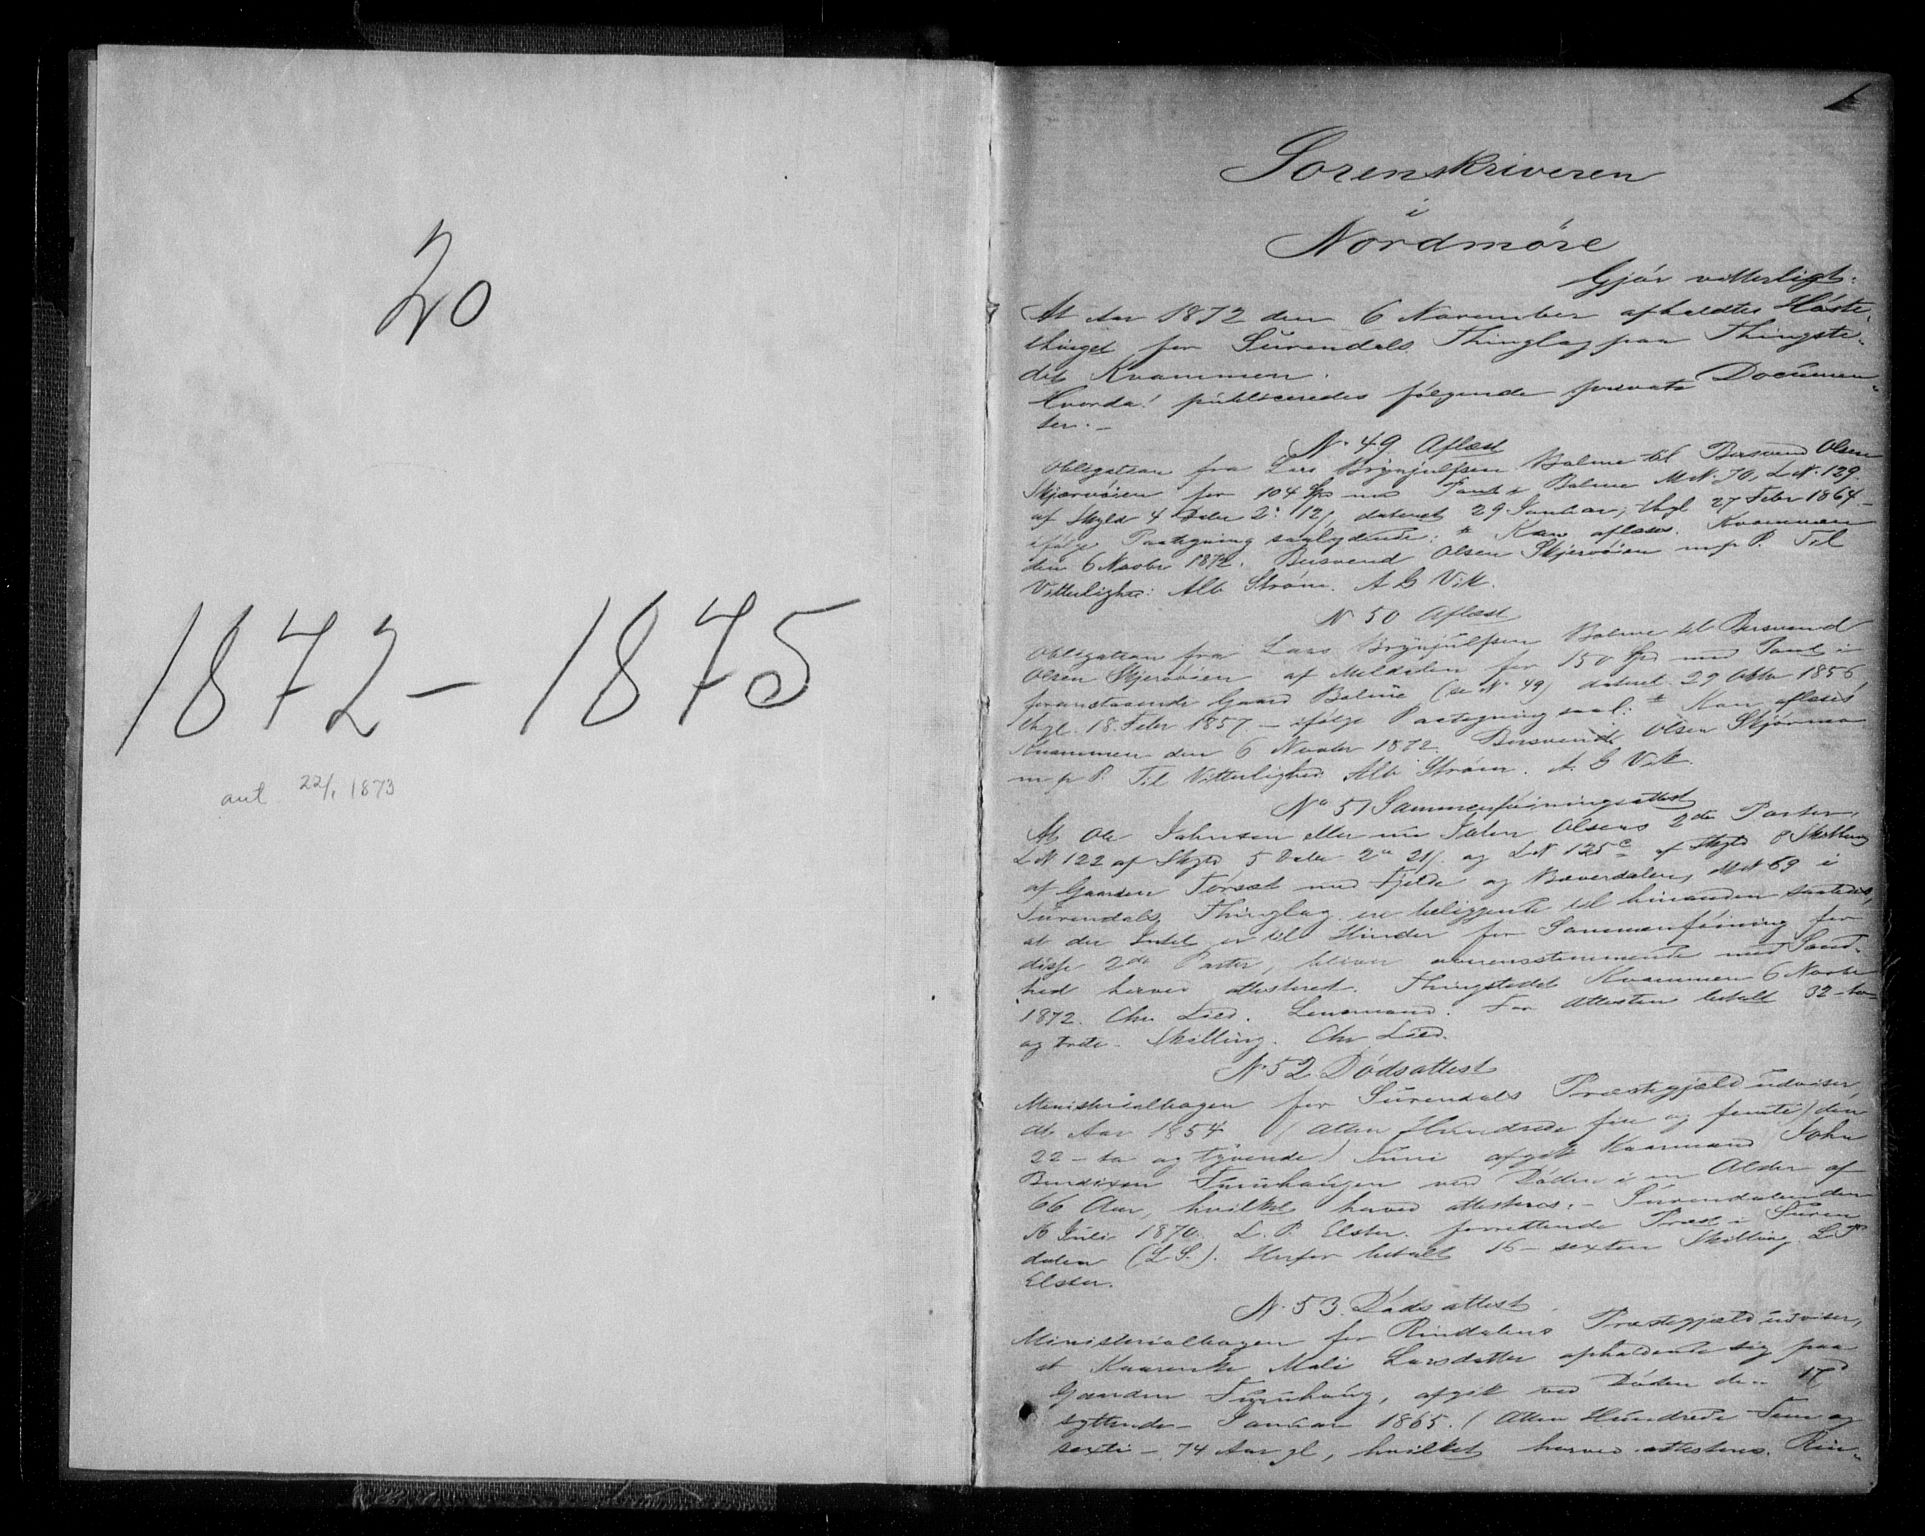 20
1872 – 1875
ant 22/1 1873
1
Sorenskriveren
i
Nordmøre
Gjør vitterligt:
At Aar 1872 den 6 November afholdtes Høste-
thinget for Surendals Thinglag paa Thingste-
det Kvammen.
Hvorda! publiceredes følgende private Documen-
ter.-
N. 49 Aflæst
Obligation fra Lars Brynjulfsen Bolme til Bersvend Olsen
Skjærvøien for 104 Spd med Pant i Bolme M.N. 70, L.N. 129
af Skyld 4 Daler 2 12/, dateret 29 Januar, thgl 27 Febr 1864 -
ifølge Paategning saalydende: Kan aflæses. Kvammen
den 6 Novbr 1872. Bersvend Olsen Skjervøien m.p.P. Til
Vitterlighed: Alb Strøm. A G Vik.
N 50 Aflæst
Obligation fra Lars Brynjulfsen Bolme til Bersvend
Olsen Skjervøien af Meldalen for 150 Spd med Pant i
foranstaaende Gaard Bolme (se N. 49) dateret 29 Oktbr 1856
thgl. 18 Febr 1857 – ifølge Paategning saal: Kan aflæses
Kvammen den 6 Novbr 1872. Bersvend Olsen
m.p.P. Til Vitterlighed. Alb Strøm. A. G Vik.
No 51 Sammenføiningsattest
At Ole Johnsen eller nu Olsens 2de Parter,
L N 122 af Skyld 5 Daler 2 21/ og L N 125c af Skyld 8 Skilling
af Gaarden Tørset med Fjelde og Bæverdalen, M.N 69 i
Surendals Thinglag ere beliggende til hinanden saaledes,
at der Intet er til Hinder for Sammenføining for
disse 2de Parter, bliver overensstemmende med Sand-
hed herved attesteret. Thingstedet Kvammen 6 Novbr
1872. Chr Lied. Lensmand. For Attesten betalt 32 – to
og tredi – Skilling. Chr Lied.
N. 52 Dødsattest
Ministerialbogen for Surendals Præstegjæld udviser,
at Aar 1854 (Atten Hundrede fire og femti) den
22 – to og tyvende) Juni afgik Kaarmand John
Bendixen Furuhaugen ved Døden i en Alder af
66 Aar, hvilket herved attesteres. – Surendalen den
Juli 1870. L. P. Elster. forrettende Præst i Suren
dalen (L.S.). Herfor betalt 16 – sexten Skilling. L P
Elster.
N. 53. Dødsattest
Ministerialbogen for Rindalens Præstegjæld udviser,
at Kaarenke Mali Larsdatter opholdende sig paa
Gaarden Furuhaug, afgik ved Døden den 17
syttende – Januar 1865. (Atten Hundrede Fem og
sexti – 74 Aar gl, hvilket herved attesteres. Rin-